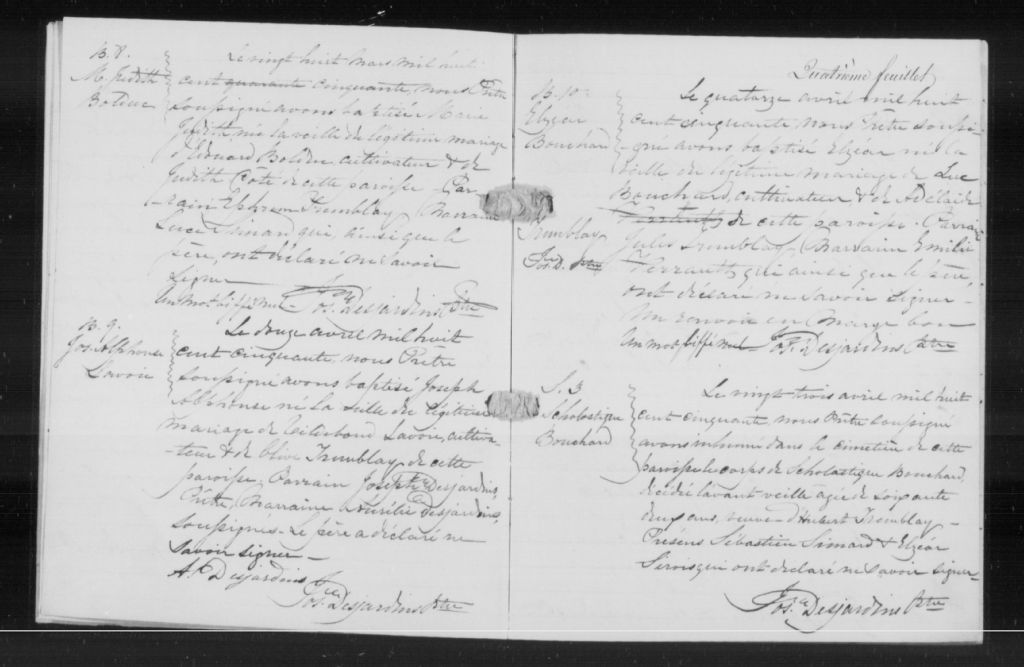 B. 8.
M. Judith
Bolduc
Le vingt huit mars mil huit
cent quarante cinquante, nous Prêtre
soussigné avons baptisée Marie
Judith née la veille de légitime mariage
d'Edouard Bolduc cultivateur & de
Judith Côté de cette paroisse - Par-
rain Ephrem Tremblay Marraine
Luce Simard qui, ainsi que le
père, ont déclaré ne savoir
signer
Un mot biffé nul Jos. Desjardins Ptre
B. 9.
Jos. Alphonse
Lavoie
Le douze avril mil huit
cent cinquante, nous Prêtre
soussigné avons baptisé Joseph
Alphonse né la veille de légitime
mariage de Lavoie, cultiva-
-teur & de Olive Tremblay de cette
paroisse, Parrain Joseph Desjardins,
Prêtre, Marraine Aurélie Desjardins,
soussignés. Le père a déclaré ne
savoir signer -
A. Desjardins
Jos. Desjardins Ptre
Quatrième feuillet
B. 10
Elzéar
Bouchard
Le quatorze avril mil huit
cent cinquante nous Prêtre soussi-
-gné avons baptisé Elzéar né la
veille de légitime mariage de Luc
Bouchard, cultivateur & de Adélaïde
de cette paroisse. Parrain
Jules Tremblay Marraine Emilie
Perrault, qui ainsi que le père,
ont déclaré ne savoir signer -
Un renvoi en marge bon
Un mot biffé nul Jos. Desjardins Ptre
Tremblay
Jos. D. Ptre
S. 3
Scholastique
Bouchard
Le vingt trois avril mil huit
cent cinquante, nous Prêtre soussigné
avons inhumé dans le cimetière de cette
paroisse le corps de Scholastique Bouchard,
décédée l'avant veille agée de soixante
deux ans, veuve d'Hubert Tremblay -
Présens Sébastien Simard & Elzéar
Sirois qui ont déclaré ne savoir signer -
Jos. Desjardins Ptre